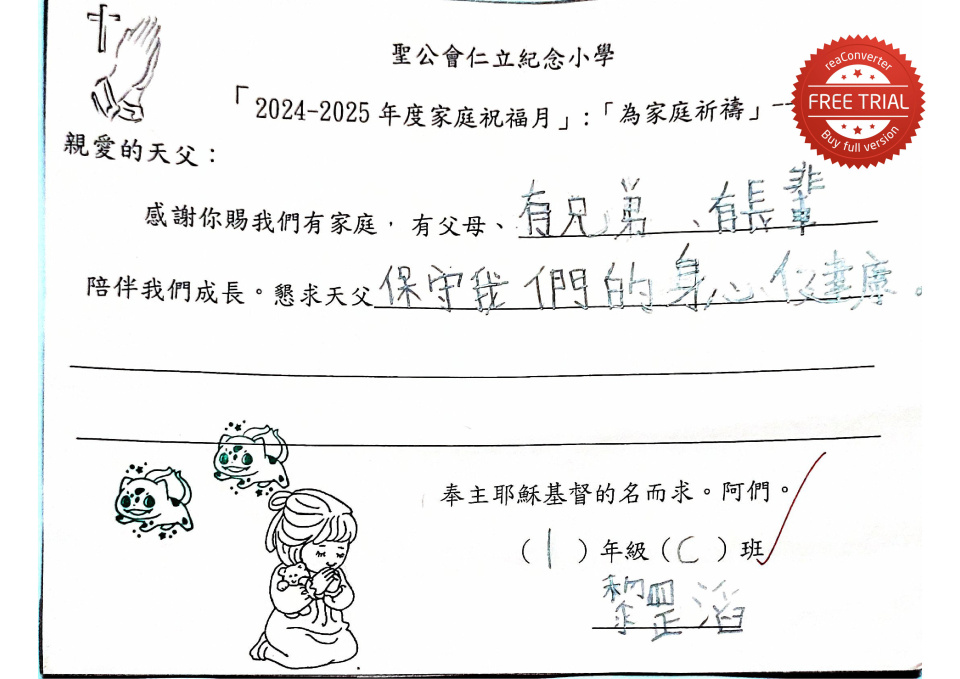 聖公會仁立紀念小學
「2024-2025 年度家庭祝福月」:「為家庭祈禱」--
reaConverter
FREE TRIAL
Buy full version
親愛的天父：
感謝你賜我們有家庭，有父母、有兄弟、有長輩
陪伴我們成長。懇求天父保守我們的身心健康。
奉主耶穌基督的名而求。阿們。
（1）年級（C）班
黎罡滔